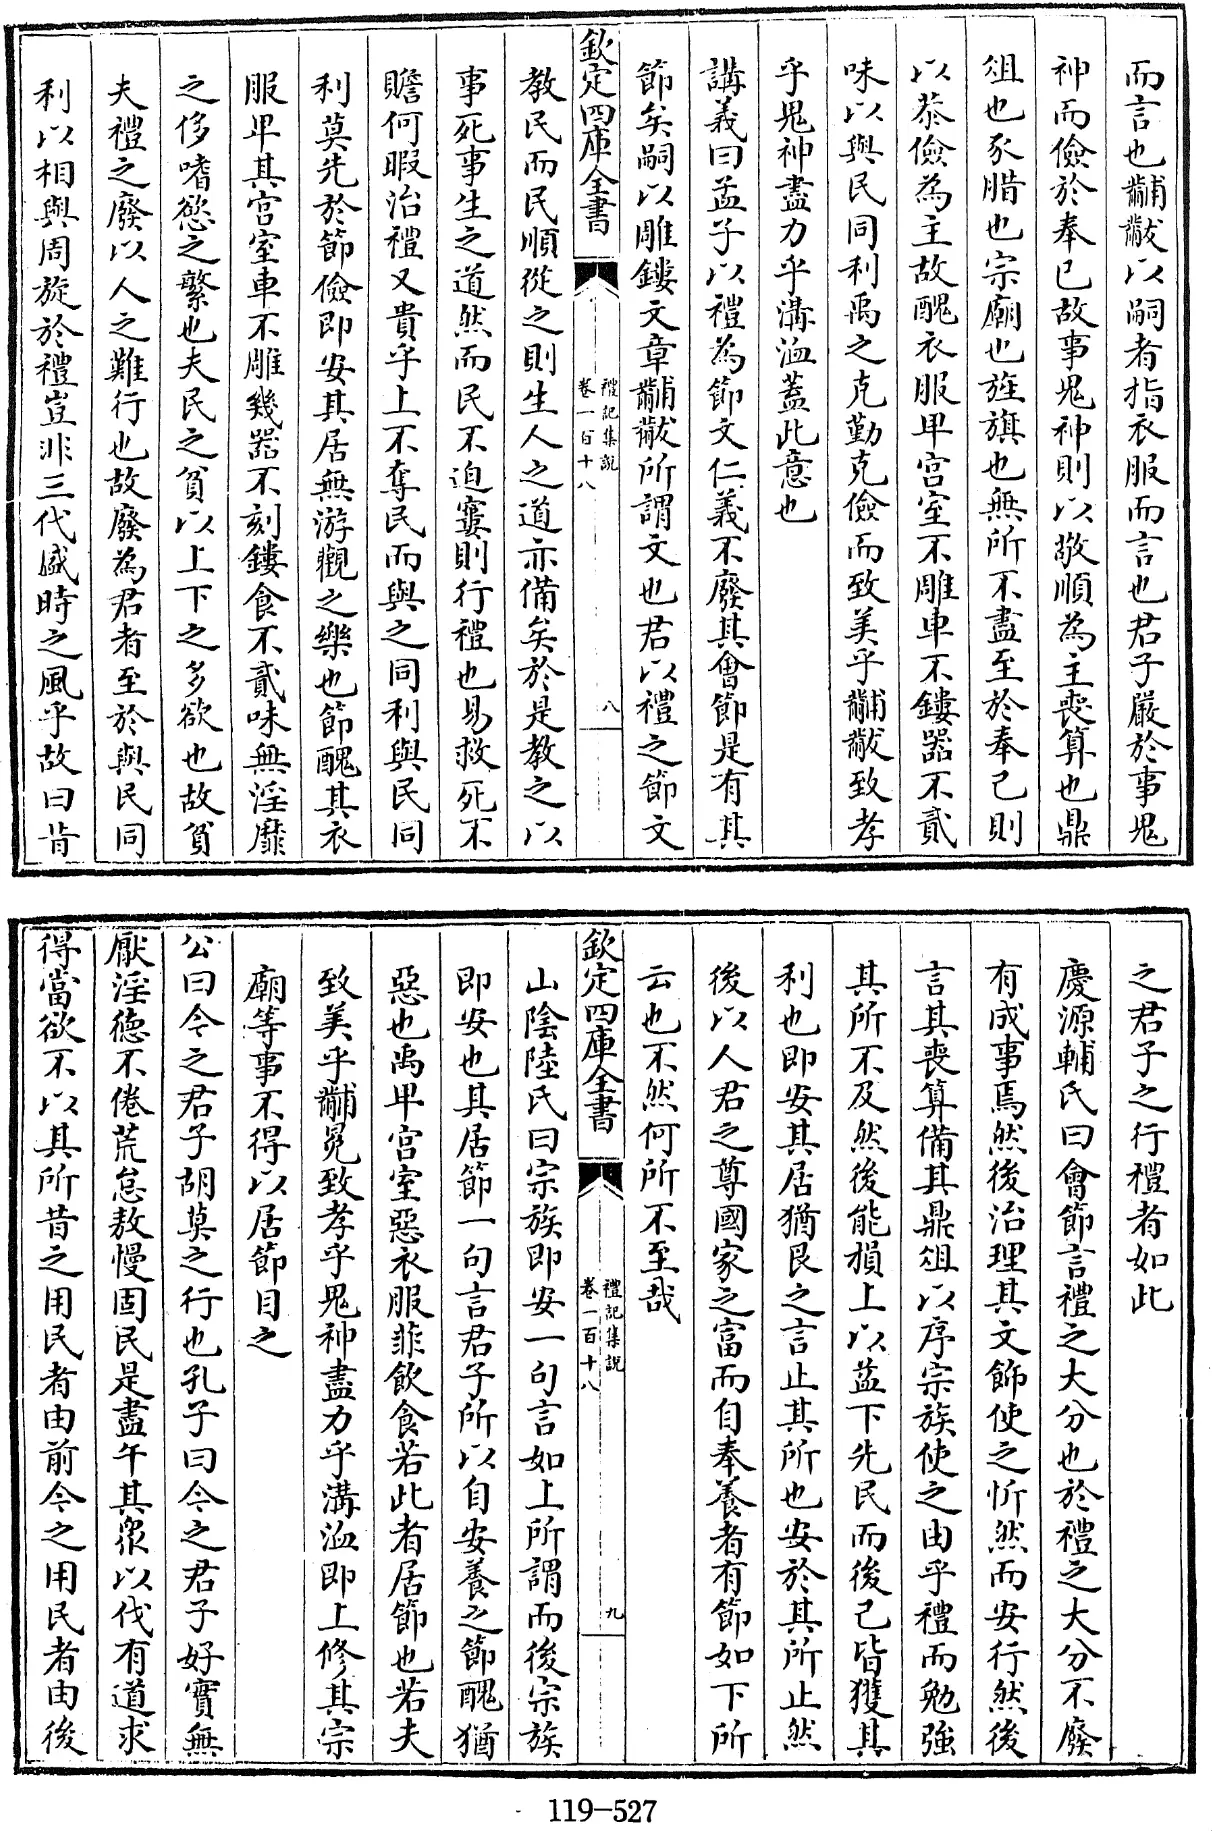 而言也黼黻以嗣者指衣服而言也君子嚴於事鬼
神而儉於奉已故事鬼神則以敬順為主喪算也鼎
俎也豕腊也宗廟也旌旗也無所不盡至於奉己則
以恭儉為主故醜衣服卑宫室不雕車不鏤器不貳
味以與民同利禹之克勤克儉而致美乎黼黻致孝
乎鬼神盡力乎溝洫蓋此意也
講義曰孟子以禮為節文仁義不廢其㑹節是有其
節矣嗣以雕鏤文章黼黻所謂文也君以禮之節文
欽定四庫全書
禮記集說
卷一百十八
八
教民而民順從之則生人之道亦備矣於是教之以
事死事生之道然而民不迫窶則行禮也易救死不
贍何暇治禮又貴乎上不奪民而與之同利與民同
利莫先於節儉即安其居無游觀之樂也節醜其衣
服卑其宫室車不雕幾器不刻鏤食不貳味無淫靡
之侈嗜慾之繁也夫民之貧以上下之多欲也故貧
夫禮之廢以人之難行也故廢為君者至於與民同
利以相與周旋於禮豈非三代盛時之風乎故曰昔
之君子之行禮者如此
慶源輔氏曰會節言禮之大分也於禮之大分不廢
有成事焉然後治理其文飾使之忻然而安行然後
言其喪算備其鼎俎以序宗族使之由乎禮而勉強
其所不及然後能損上以益下先民而後己皆獲其
利也即安其居猶艮之言止其所也安於其所止然
後以人君之尊國家之富而自奉養者有節如下所
云也不然何所不至哉
欽定四庫全書
禮記集說
卷一百十八
九
山陰陸氏曰宗族即安一句言如上所謂而後宗族
即安也其居節一句言君子所以自安養之節醜猶
惡也禹卑宫室惡衣服菲飲食若此者居節也若夫
致美乎黼冕致孝乎鬼神盡力乎溝洫即上修其宗
廟等事不得以居節目之
公曰今之君子胡莫之行也孔子曰今之君子好實無
厭淫德不倦荒怠敖慢固民是盡午其衆以伐有道求
得當欲不以其所昔之用民者由前今之用民者由後
119-527